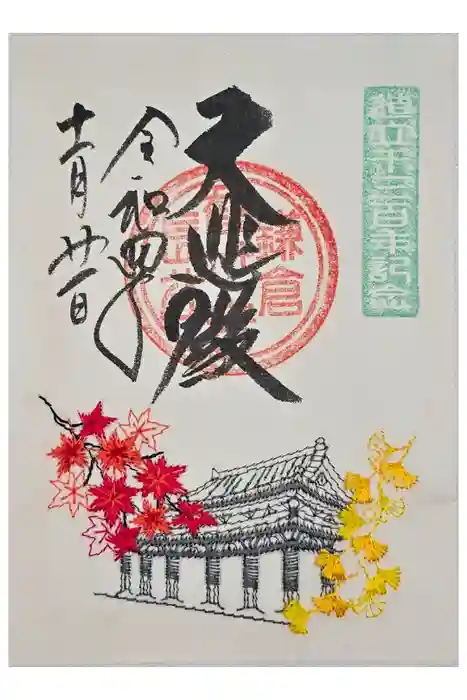 造立千三百年記念
大悲殿
鎌倉
令和四年
十一月廿一日